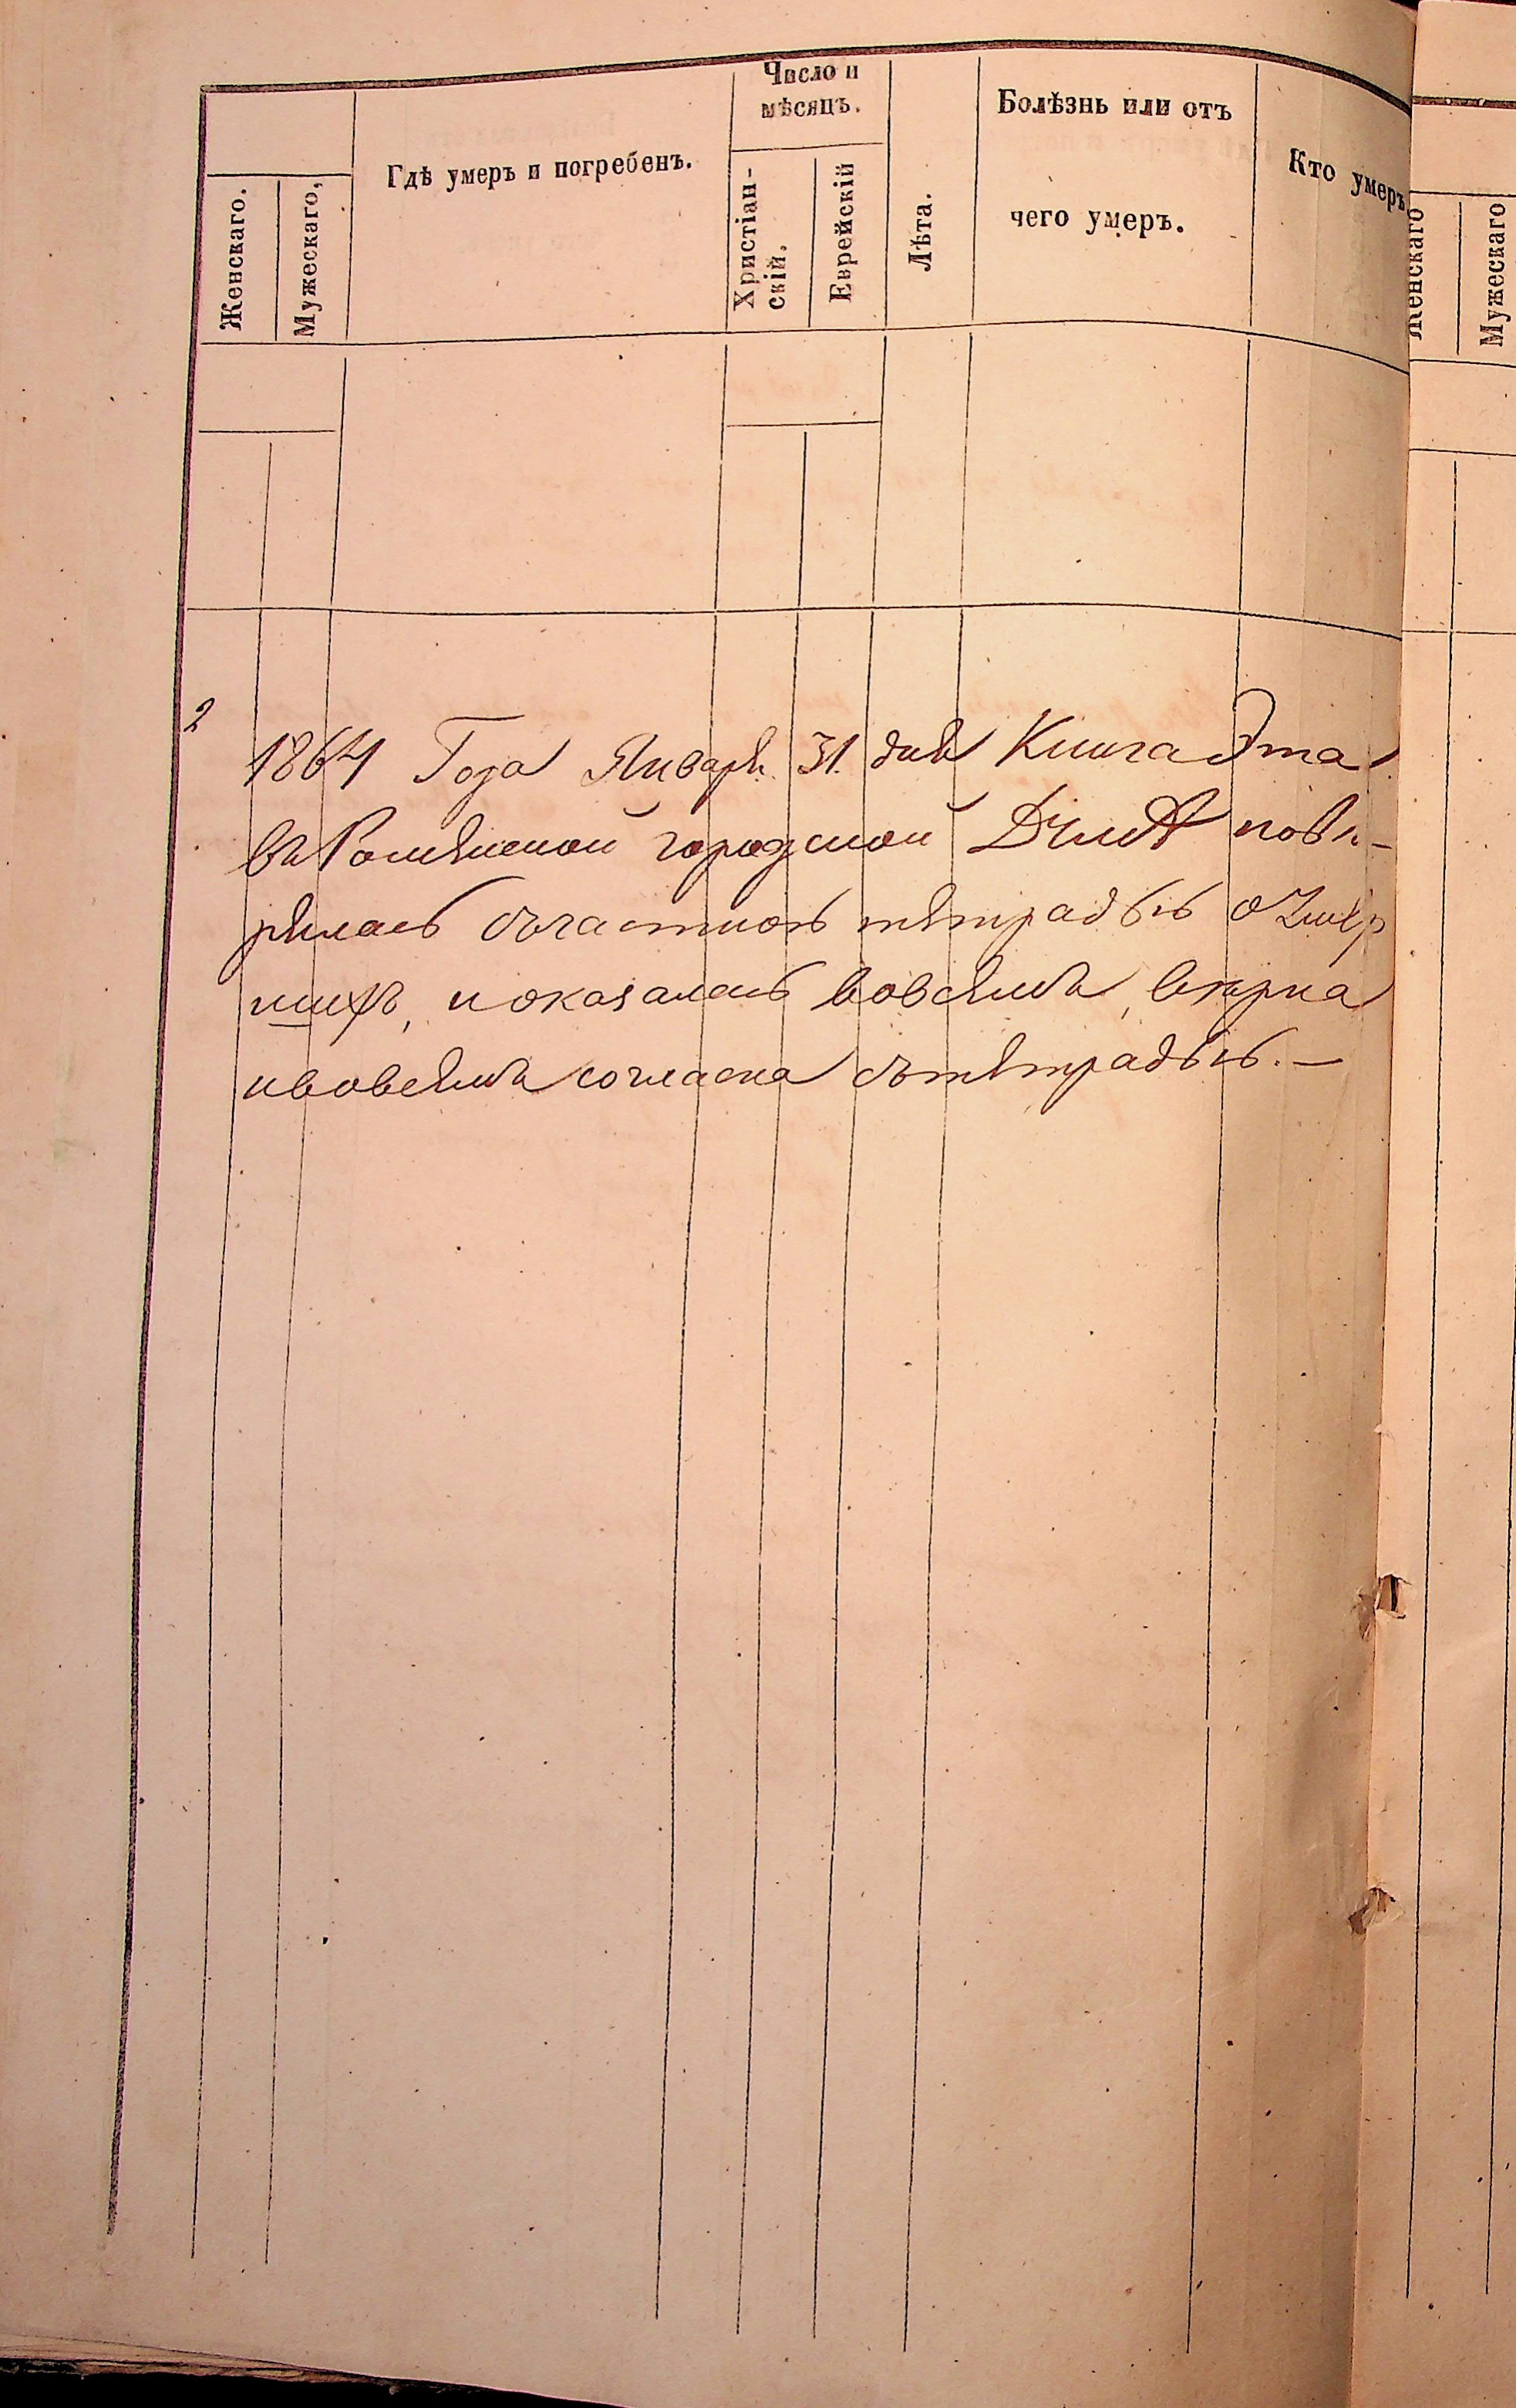 Число и
мѣсяцъ.
Женскаго.
Мужескаго,
Гдѣ умеръ и погребенъ.
Христіан-
скій.
Еврейскій
Лѣта.
Болѣзнь или отъ
чего умеръ.
Кто умеръ
Женскаго
Мужескаго
2
1864 Года Января 31. дня Книга Эта
въ Роменской городской Думѣ повѣ-
рялась съчастною тетрадью о Умер
шихъ, показалась вовсемъ, вѣрна
ивовсемъ согласна сътетрадью. —